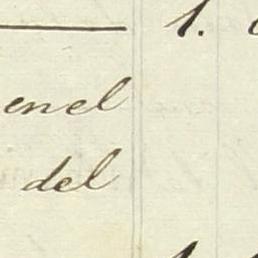 1.
enel
del